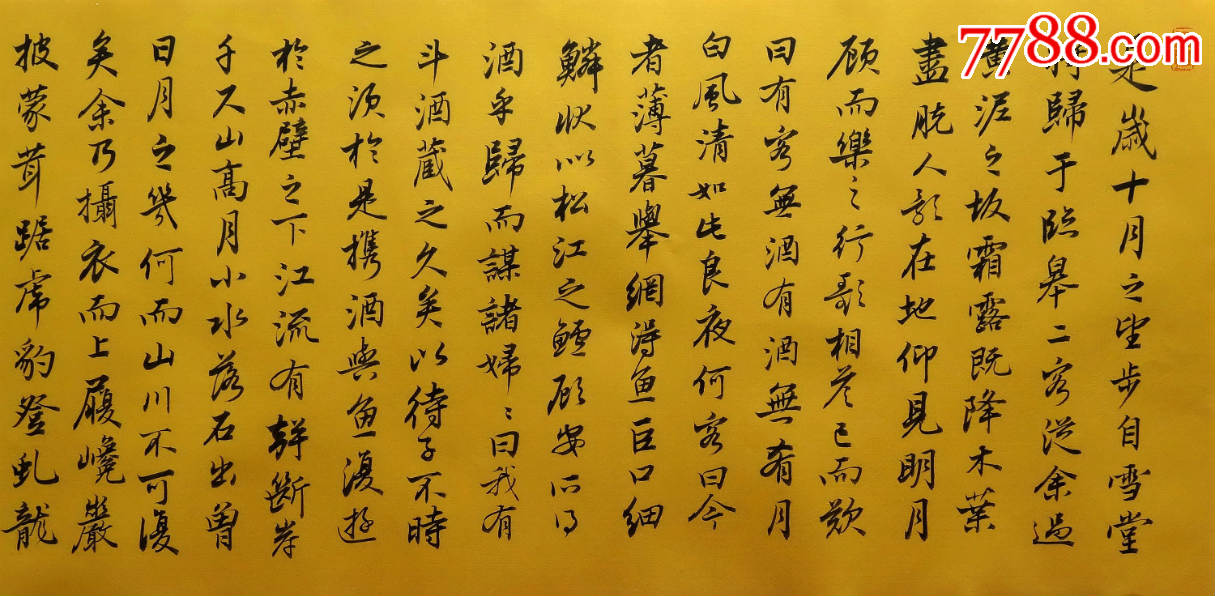 7788.com
是歲十月之望步自雪堂
將歸于臨皋二客從余過
黃泥之坂霜露既降木葉
盡脫人影在地仰見明月
顧而樂之行歌相答已而歎
曰有客無酒有酒無肴月
白風清如此良夜何客曰今
者薄暮舉網得魚巨口細
鱗狀似松江之鱸顧安所得
酒乎歸而謀諸婦〻曰我有
斗酒藏之久矣以待子不時
之須於是携酒與魚復遊
於赤壁之下江流有聲斷岸
千尺山高月小水落石出曾
日月之幾何而山川不可復
矣余乃攝衣而上履巉巖
披蒙茸踞虎豹登虬龍